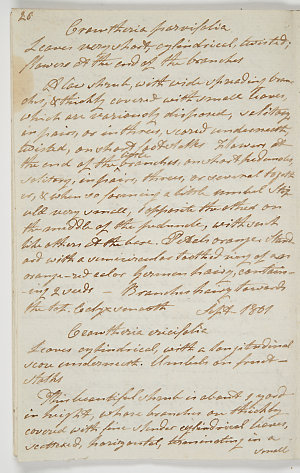 26
Crowtheria parvifolia
Leaves very short, cylindrical, twisted;
flowers at the end of the branches
A low shrub, with wide spreading bran-
ches, & thickly covered with small leaves,
which are variously disposed, solitary,
in pairs, or in threes, scored underneath,
twisted, on short footstalks Flowers at
the end of the
after
branches, on short peduncles,
solitary, in pairs, threes, or several togeth-
er, & when so forming a little umbel Stip-
ulæ very small, opposite the other on
the middle of the peduncle, with such
like others at the base. Petals orange; stand-
ard with a semicircular toothed ring of an
orange-red color Germen hairy, contain-
ing 2 seeds — Branches hairy towards
the top. Calyx smooth Sept. 1801
Crowtheria ericifolia
Leaves cylindrical, with a longitudinal
score underneath. Umbels on foot-
stalks
This beautiful shrub is about a yard
in height, whose branches are thickly
covered with fine slender cylindrical leaves,
scattered, horizontal, terminating in a
small